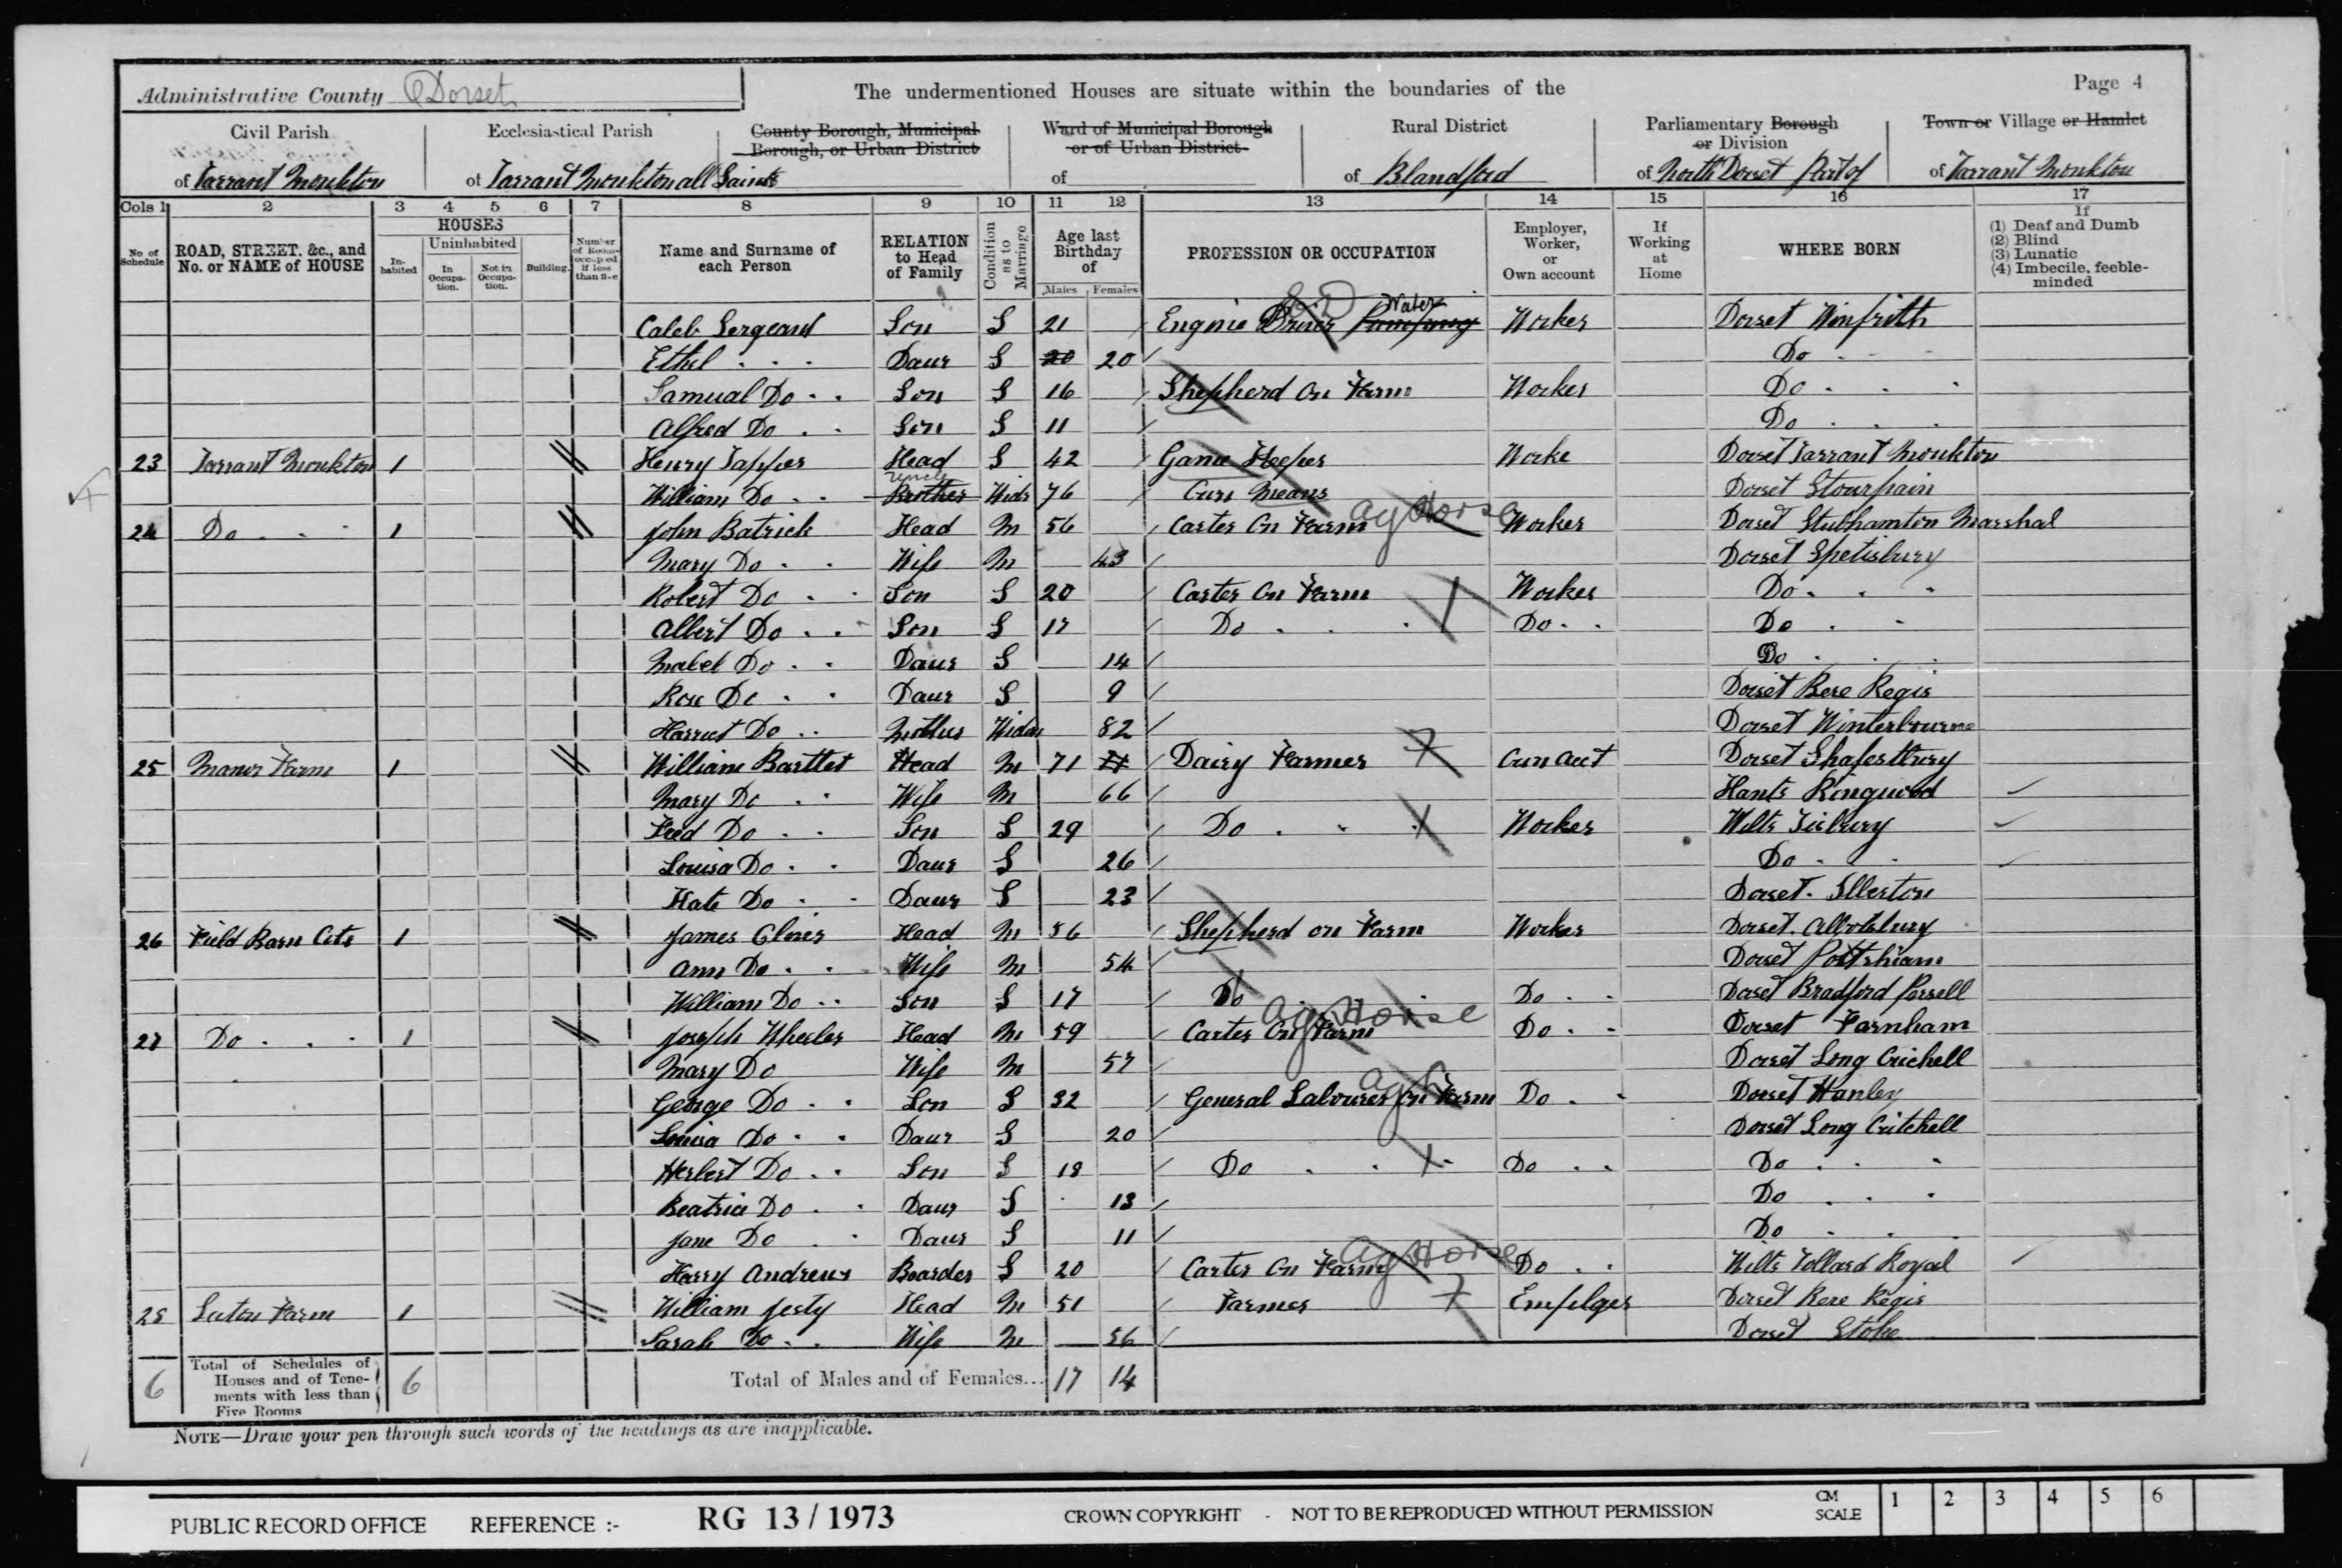 Administrative County Dorset
The undermentioned Houses are situate within the boundaries of the
Page 4
Civil Parish
of Tarrant Monkton
Ecclesiastical Parish
of Tarrant Monkton all Saints
County Borough, Municipal Borough, or Urban District
Ward of Municipal Borough or of Urban District
of
Rural District
of Blandford
Parliamentary Borough or Division
of North Dorset Part of
Town or Village or Hamlet
of Tarrant Monkton
Cols 1 2 3 4 5 6 7 8 9 10 11 12 13 14 15 16 17
No of Schedule
ROAD, STREET, &c., and No. or NAME of HOUSE
HOUSES
In-habited
Uninhabited
In Occupa-tion.
Not in Occupa-tion.
Building.
Number of Rooms occupied if less than five
Name and Surname of each Person
RELATION to Head of Family
Condition as to Marriage
Age last Birthday of
Males Females
PROFESSION OR OCCUPATION
Employer, Worker, or Own account
If Working at Home
WHERE BORN
If
(1) Deaf and Dumb
(2) Blind
(3) Lunatic
(4) Imbecile, feeble-minded
Caleb Sergeant Son S 21 Engine Driver Pumping Water Worker Dorset Winfrith
Ethel Daur S 20 20 Do
Samual Do Son S 16 Shepherd On Farm Worker Do
Alfred Do Son S 11 Do
23 Tarrant Monkton 1 Henry Tapper Head S 42 Game Keeper Worke Dorset Tarrant Monkton
William Do Brother Uncle Widr 76 Own Means Dorset Stourpain
24 Do 1 John Batrick Head M 56 Carter On Farm Ag Horse Worker Dorset Stubhamton Marshal
Mary Do Wife M 43 Dorset Spetisbury
Robert Do Son S 20 Carter On Farm Worker Do
Albert Do Son S 17 Do Do Do
Mabel Do Daur S 14 Do
Rose Do Daur S 9 Dorset Bere Regis
Harriet Do Mother Widow 82 Dorset Winterbourne
25 Manor Farm 1 William Bartlet Head M 71 Dairy Farmer Own Acct Dorset Shafestbury
Mary Do Wife M 66 Hants Ringwood
Fred Do Son S 29 Do Worker Wilts Tisbury
Louisa Do Daur S 26 Do
Kate Do Daur S 23 Dorset. Ilberton
26 Field Barn Cots 1 James Glover Head M 56 Shepherd on Farm Worker Dorset. Abbotsbury
Ann Do Wife M 54 Dorset Portshiam
William Do Son S 17 Do Do Dorset Bradford Possell
27 Do 1 Joseph Wheeler Head M 59 Carter On Farm Ag Horse Do Dorset Farnham
Mary Do Wife M 57 Dorset Long Crichell
George Do Son S 32 General Labourer On Farm Ag Do Dorset Hanley
Louisa Do Daur S 20 Dorset Long Critchell
Herbert Do Son S 18 Do Do Do
Beatrice Do Daur S 13 Do
Jane Do Daur S 11 Do
Harry Andrews Boarder S 20 Carter On Farm Ag Horse Do Wilts Tollard Royal
28 Luton Farm 1 William Jesty Head M 51 Farmer Employer Dorset Bere Regis
Sarah Do Wife M 56 Dorset Stoke
6 Total of Schedules of Houses and of Tene-ments with less than Five Rooms 6 Total of Males and of Females... 17 14
NOTE—Draw your pen through such words of the headings as are inapplicable.
PUBLIC RECORD OFFICE REFERENCE :- RG 13 / 1973 CROWN COPYRIGHT - NOT TO BE REPRODUCED WITHOUT PERMISSION CM SCALE 1 2 3 4 5 6